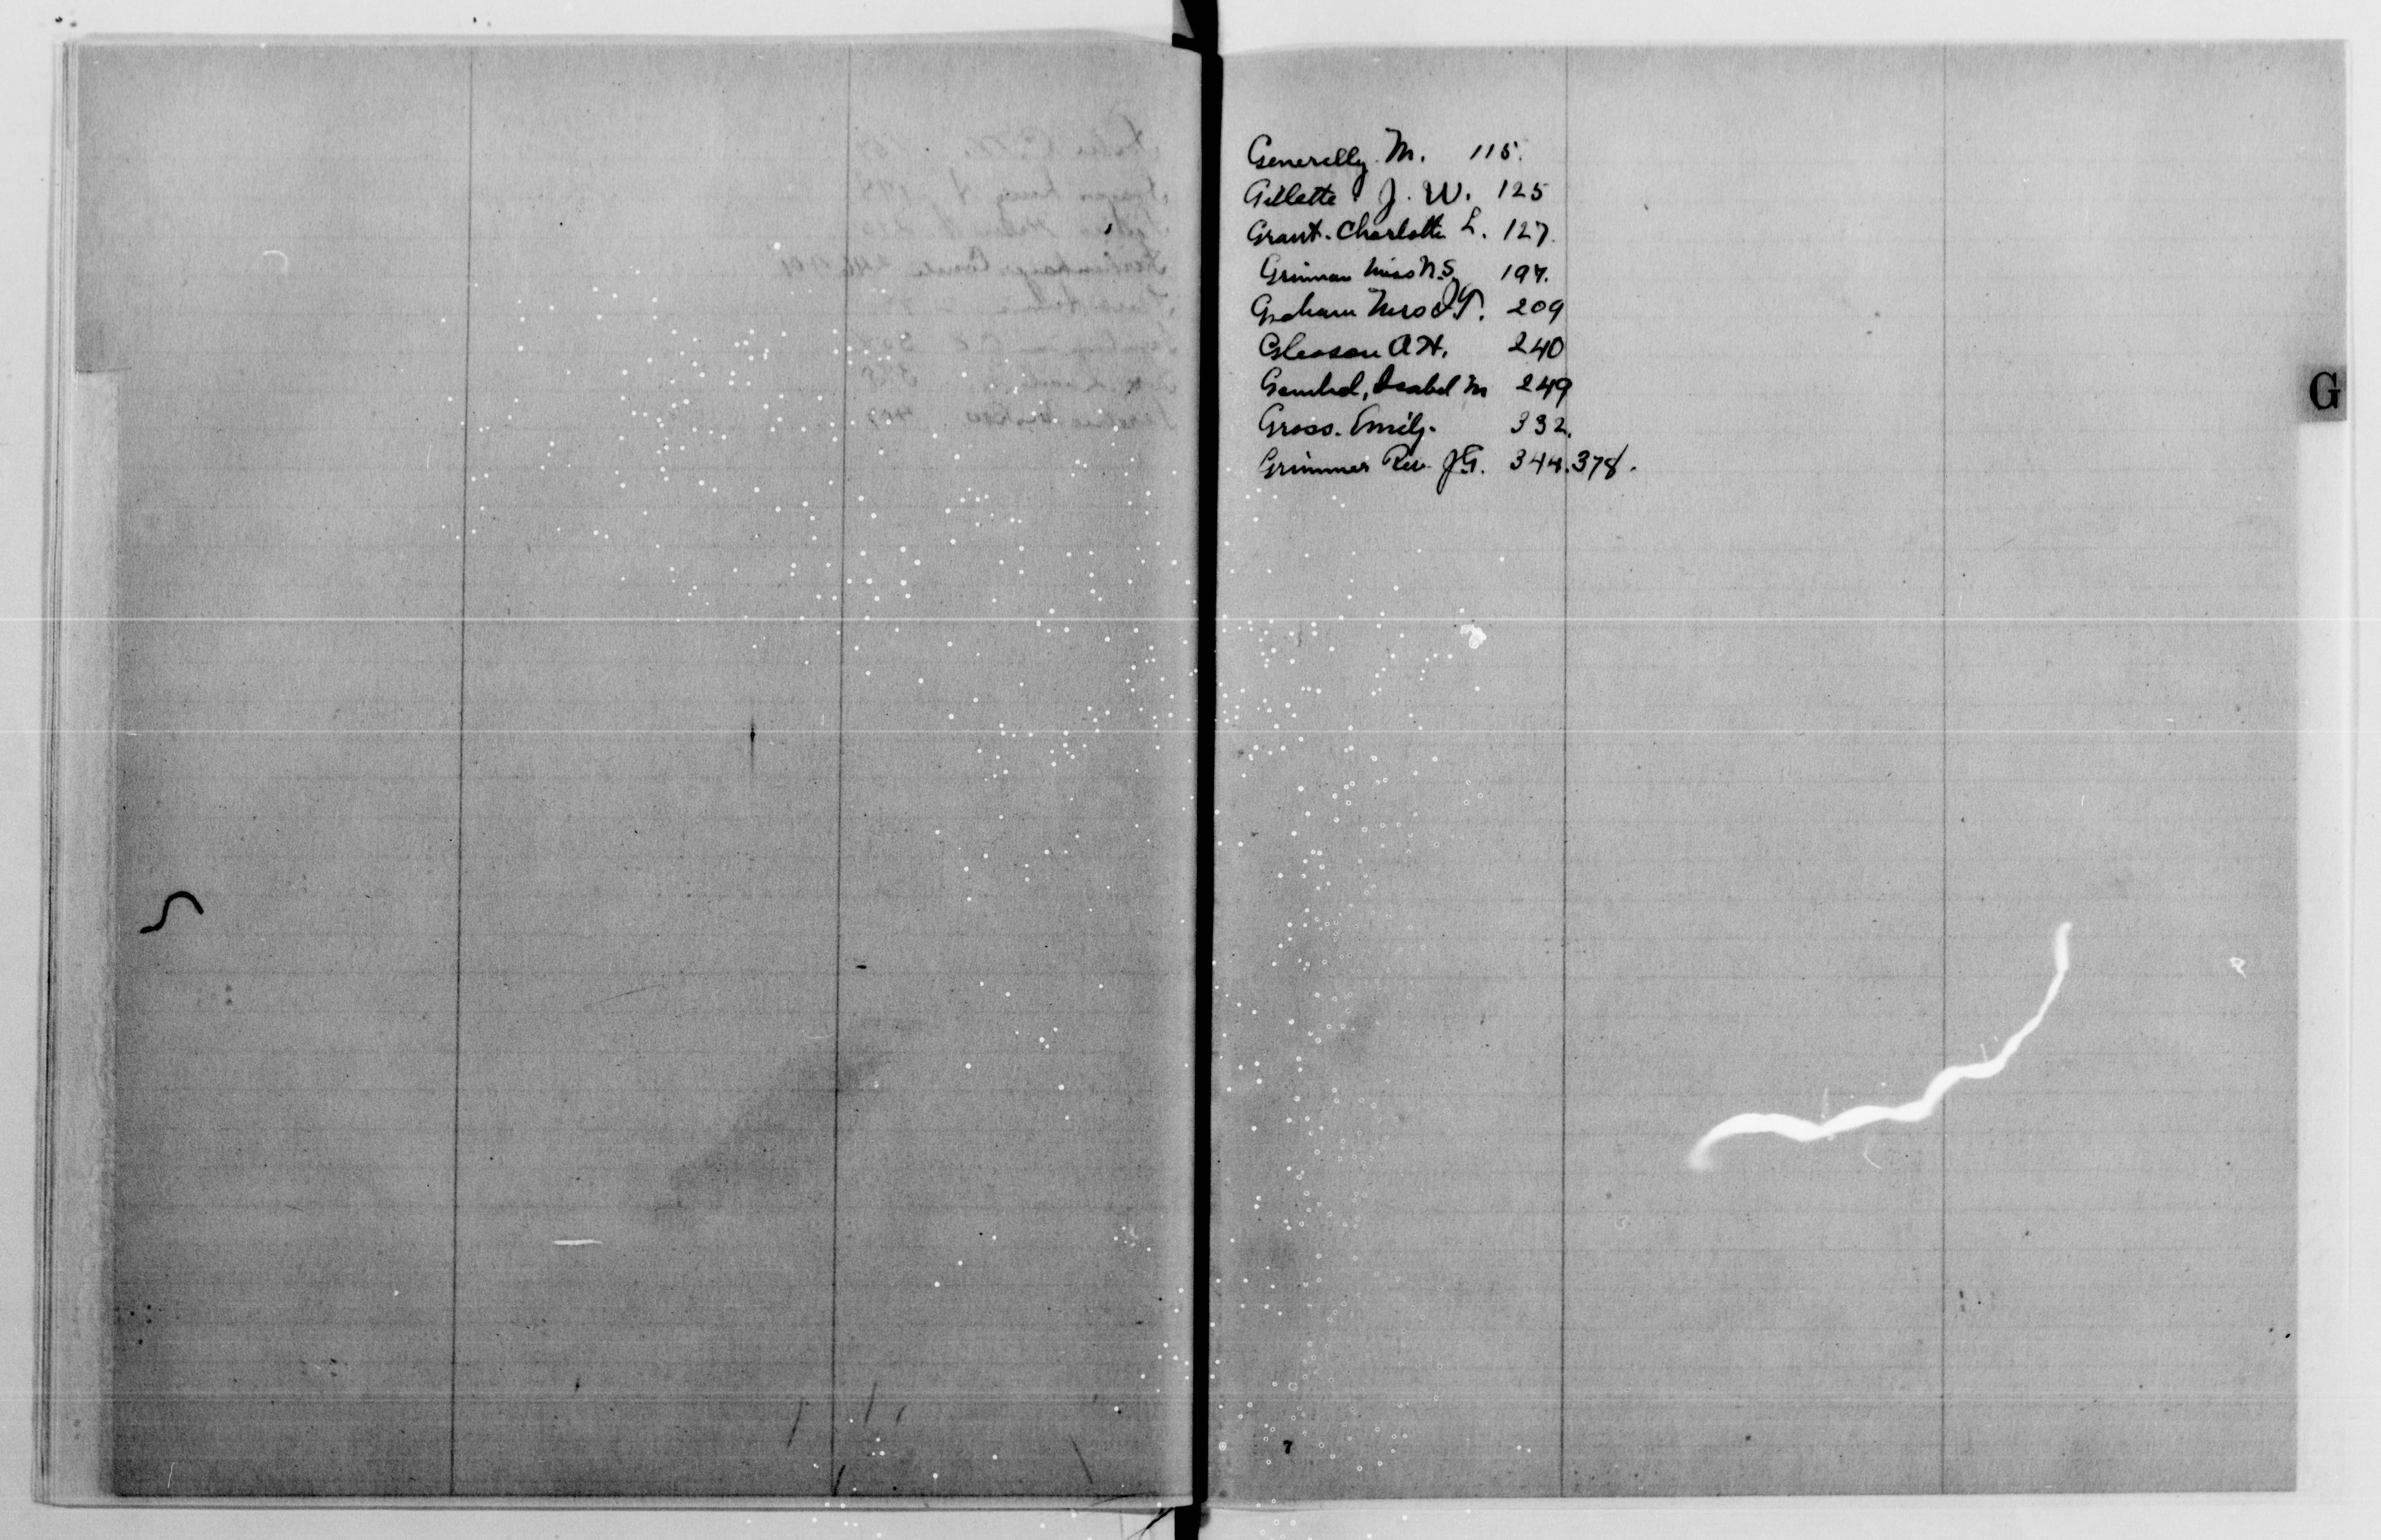 Generelly M. 115.
Gillette J. W. 125
Grant. Charlotte L. 127.
Grinnan Miss N.S. 197.
Graham Mrs 209
Gleason A H. 240
G
Isabel M 249
Gross. Emily. 332.
Grimmer Rev. J G. 344.378.
7